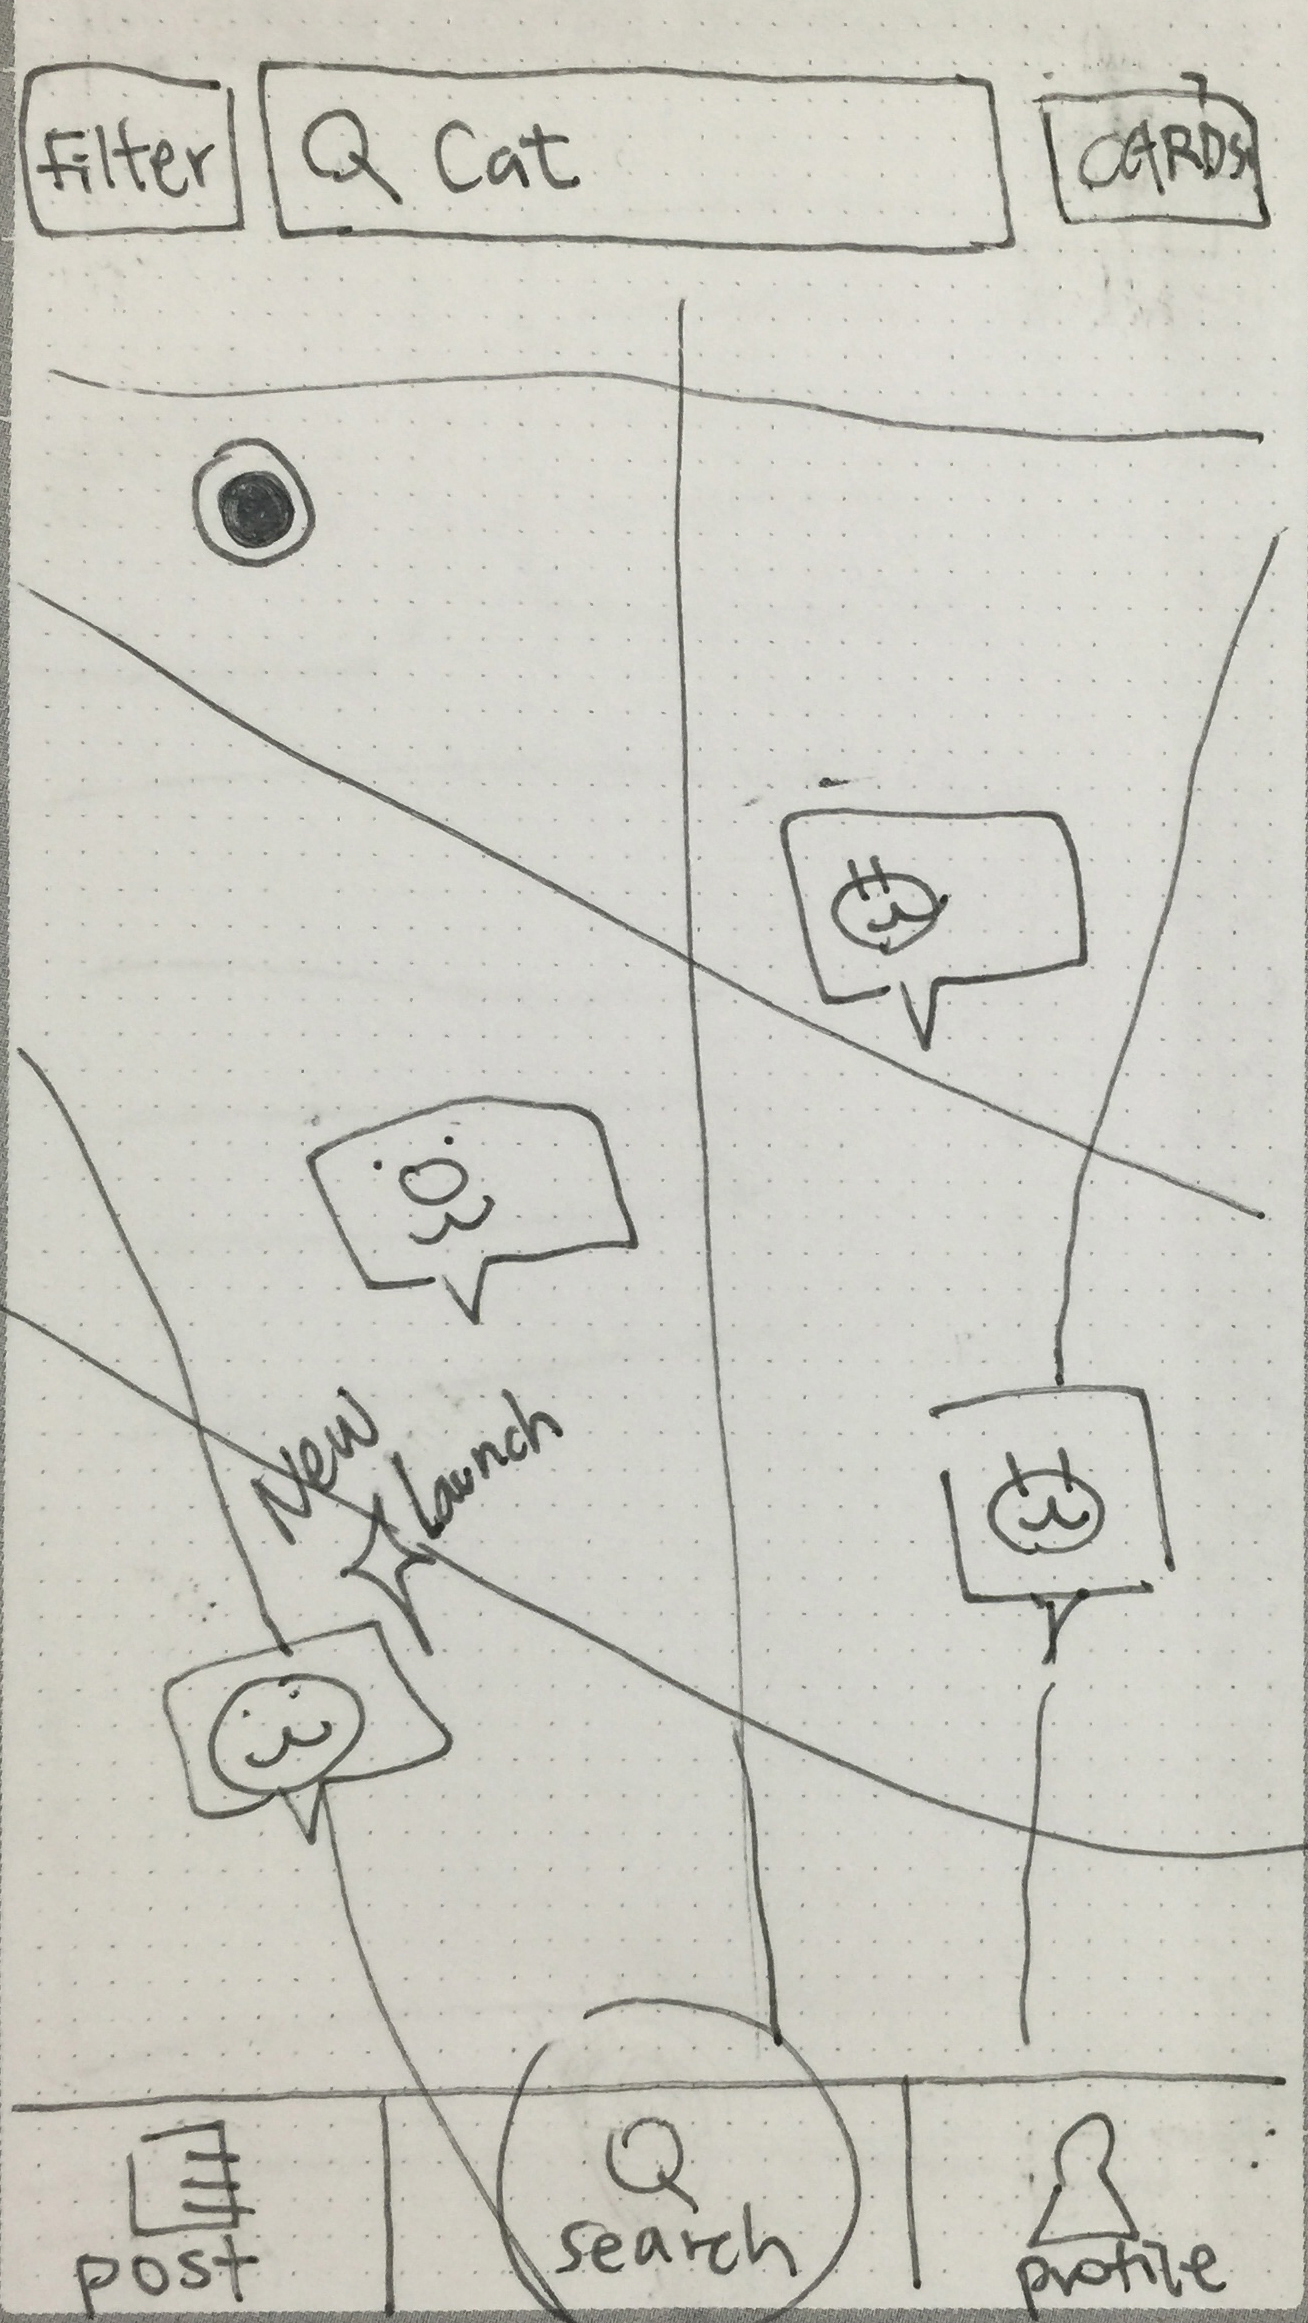 Filter
Cat
CARDS
New
Launch
post
search
profile